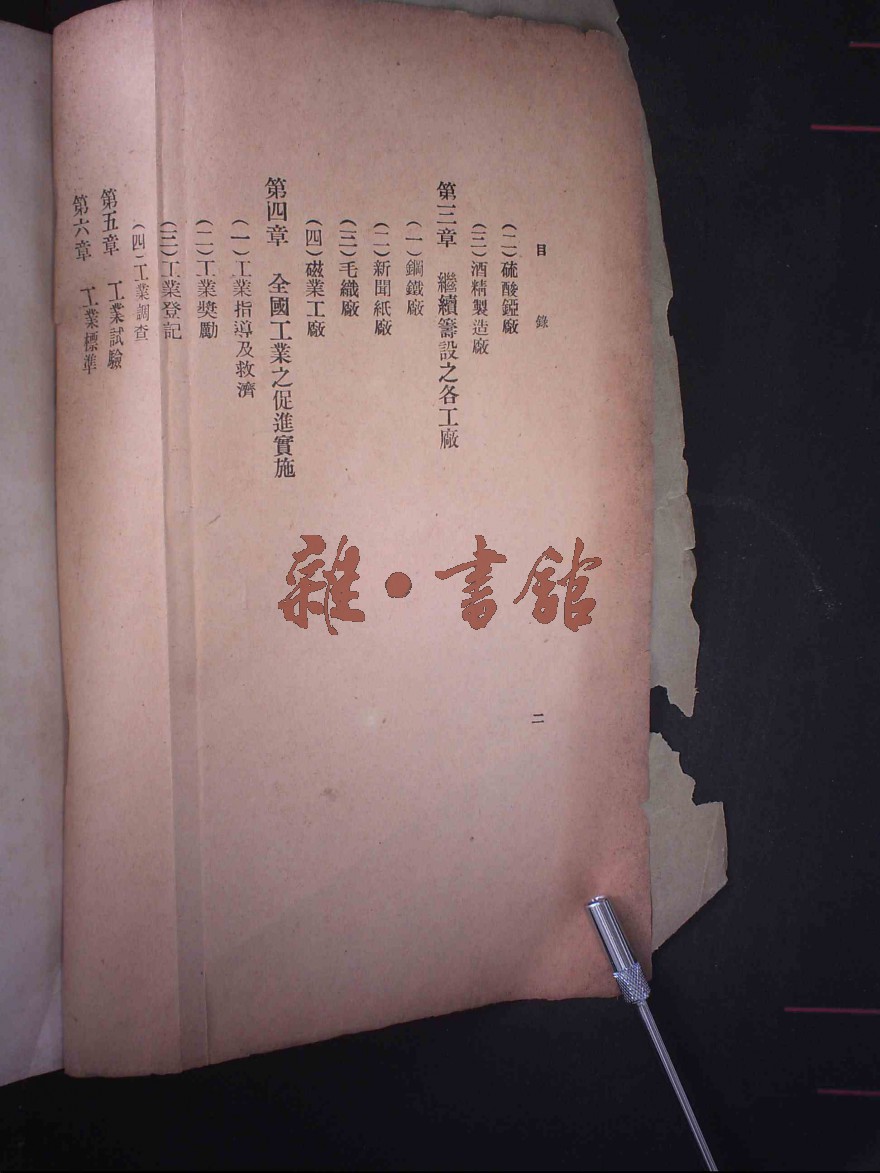 目錄
二
(二)硫酸錏廠
(三)酒精製造廠
第三章 繼續籌設之各工廠
(一)鋼鐵廠
(二)新聞紙廠
(三)毛織廠
(四)磁業工廠
第四章 全國工業之促進實施
(一)工業指導及救濟
(二)工業獎勵
(三)工業登記
(四)工業調查
第五章 工業試驗
第六章 工業標準
雜·書館